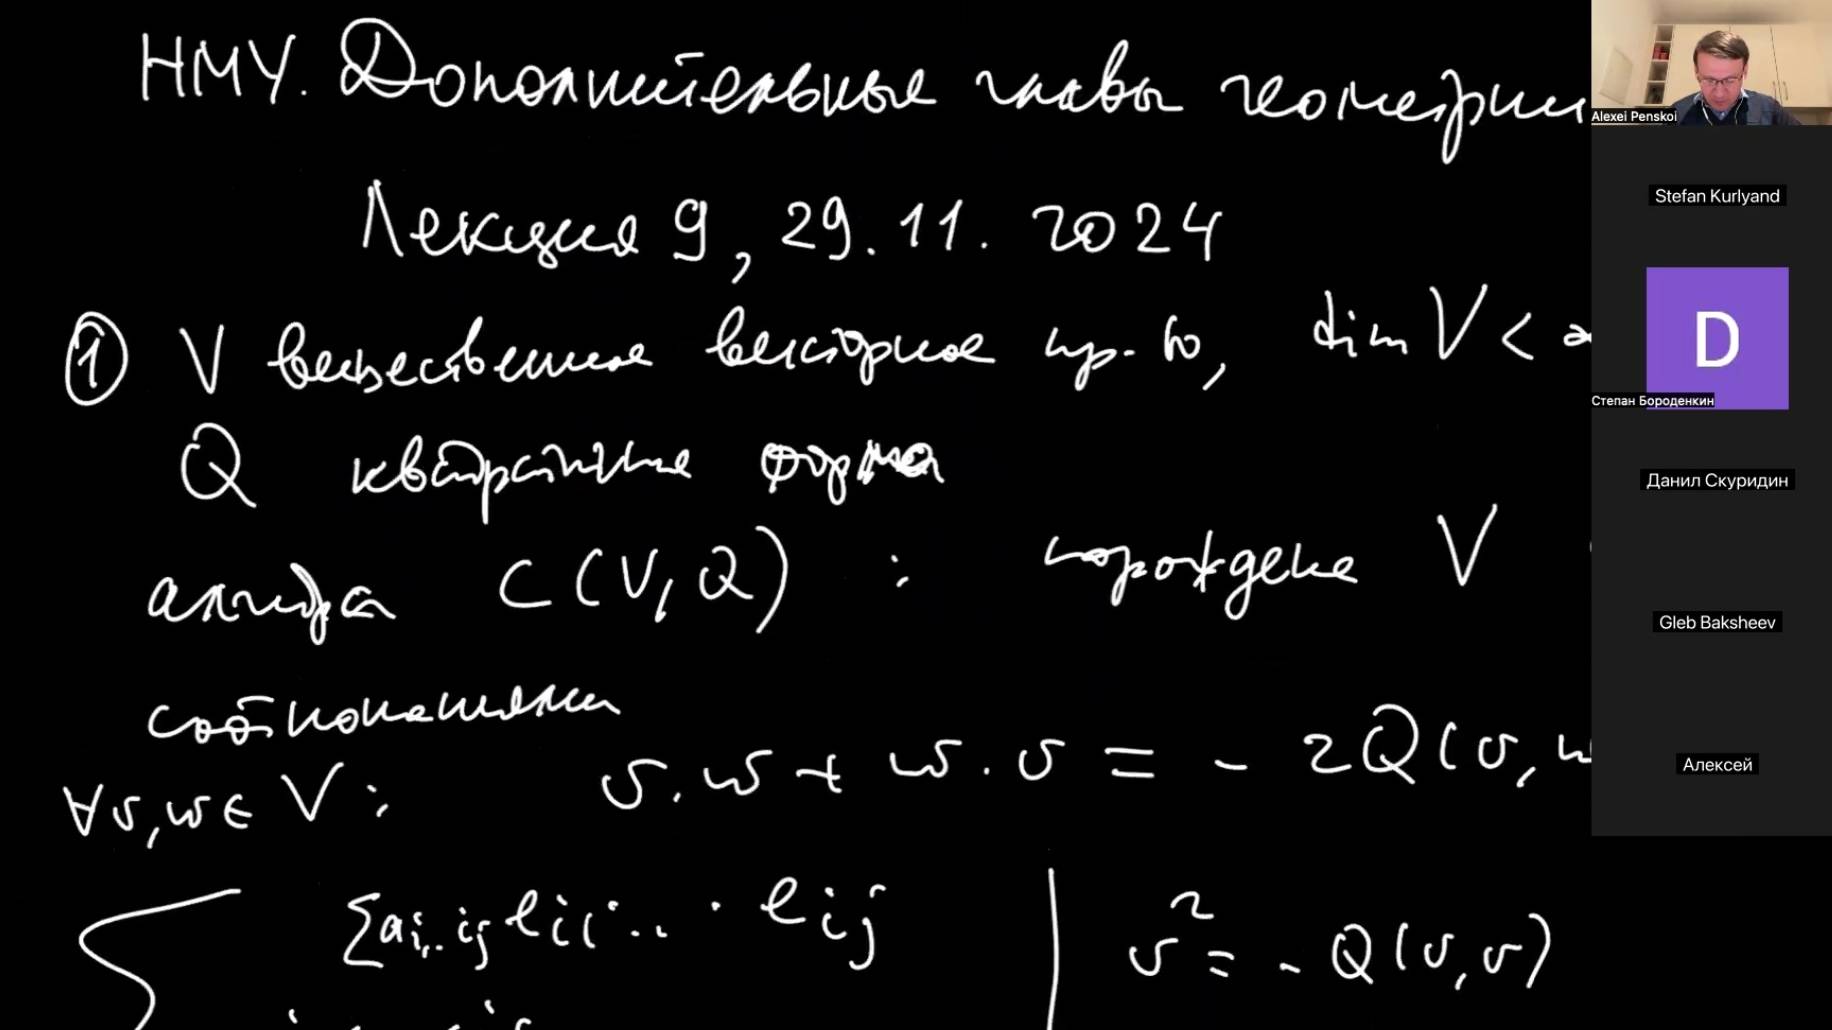 НМУ. Дополнительные главы геометрии
Лекция 9, 29.11.2024
① V вещественное векторное пр-во, dim V < ∞
Q квадратичная форма
алгебра C(V,Q) : порождена V
соотношениями
∀v,w∈V: v.w + w.v = - 2Q(v,w
Σai1..ij ei1 ... · eij
v² = - Q(v,v)
Alexei Penskoi
Stefan Kurlyand
D
Степан Бороденкин
Данил Скуридин
Gleb Baksheev
Алексей